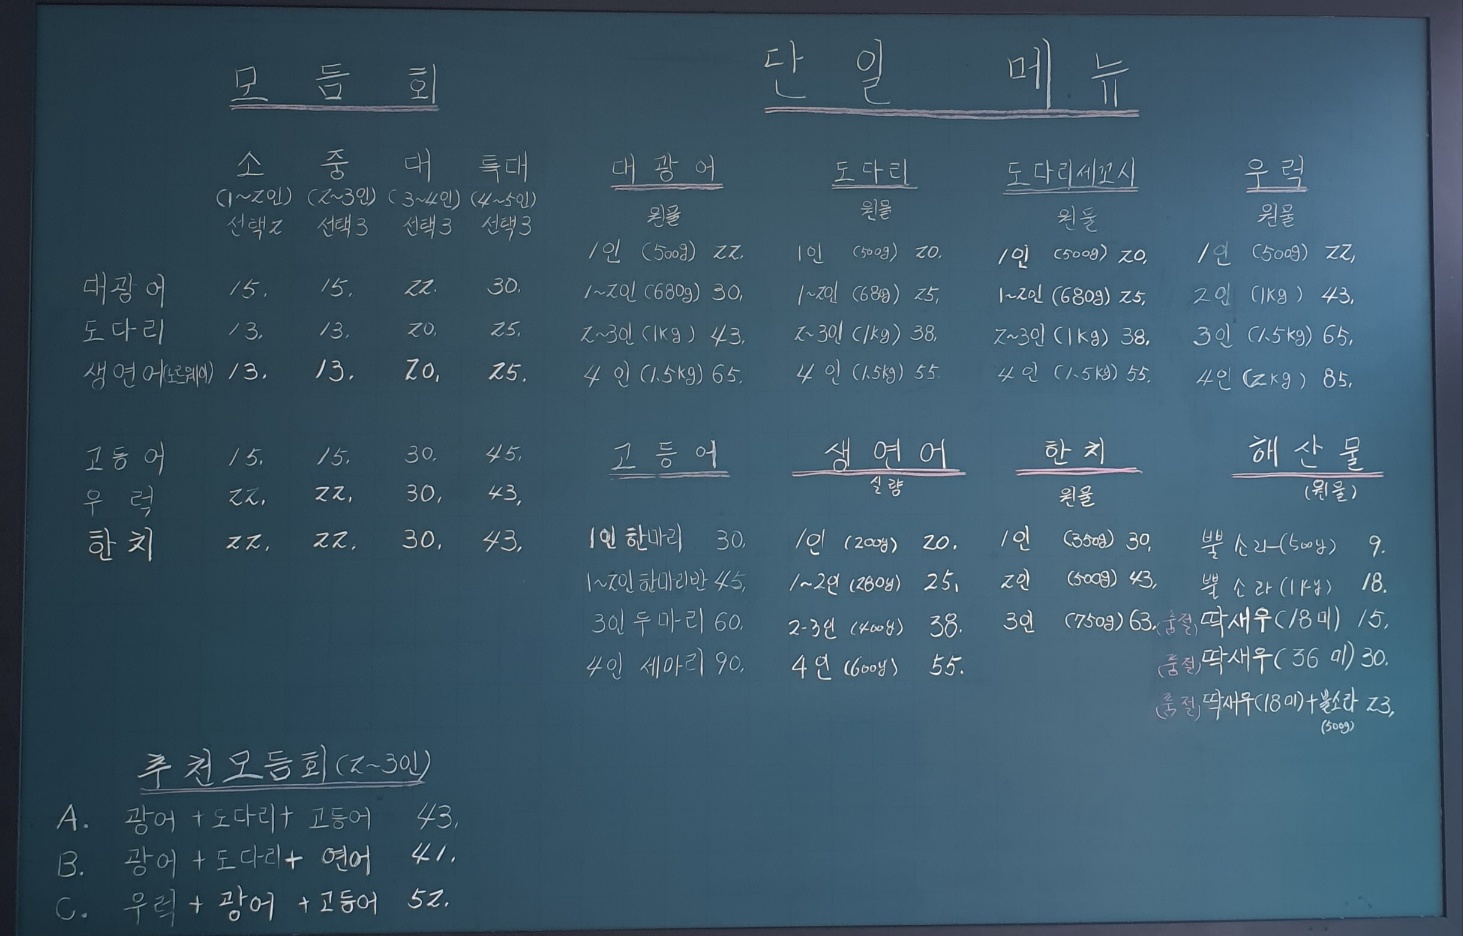 모듬회
소 중 대 특대
(1~2인) (2~3인) (3~4인) (4~5인)
선택2 선택3 선택3 선택3
대광어 15. 15. 22. 30.
도다리 13. 13. 20. 25.
생연어(노르웨이) 13. 13. 20. 25.
고등어 15. 15. 30. 45.
우럭 22. 22. 30. 43.
한치 22. 22. 30. 43.
추천모듬회(2~3인)
A. 광어+도다리+고등어 43.
B. 광어+도다리+연어 41.
C. 우럭+광어+고등어 52.
단일 메뉴
대광어
원물
1인 (500g) 22.
1~2인 (680g) 30.
2~3인 (1kg) 43.
4인 (1.5kg) 65.
도다리
원물
1인 (500g) 20.
1~2인 (68g) 25.
2~3인 (1kg) 38.
4인 (1.5kg) 55.
도다리세꼬시
원물
1인 (500g) 20.
1~2인 (680g) 25.
2~3인 (1kg) 38.
4인 (1.5kg) 55.
우럭
원물
1인 (500g) 22.
2인 (1kg) 43.
3인 (1.5kg) 65.
4인 (2kg) 85.
고등어
1인 한마리 30.
1~2인 한마리반 45.
3인 두마리 60.
4인 세마리 90.
생연어
실량
1인 (200g) 20.
1~2인 (280g) 25.
2-3인 (400g) 38.
4인 (600g) 55.
한치
원물
1인 (350g) 30.
2인 (500g) 43.
3인 (750g) 63.
해산물
(원물)
뿔소라-(500g) 9.
뿔소라(1kg) 18.
(품절) 딱새우(18미) 15.
(품절) 딱새우(36미) 30.
(품절) 딱새우(18미)+뿔소라 23.
(500g)